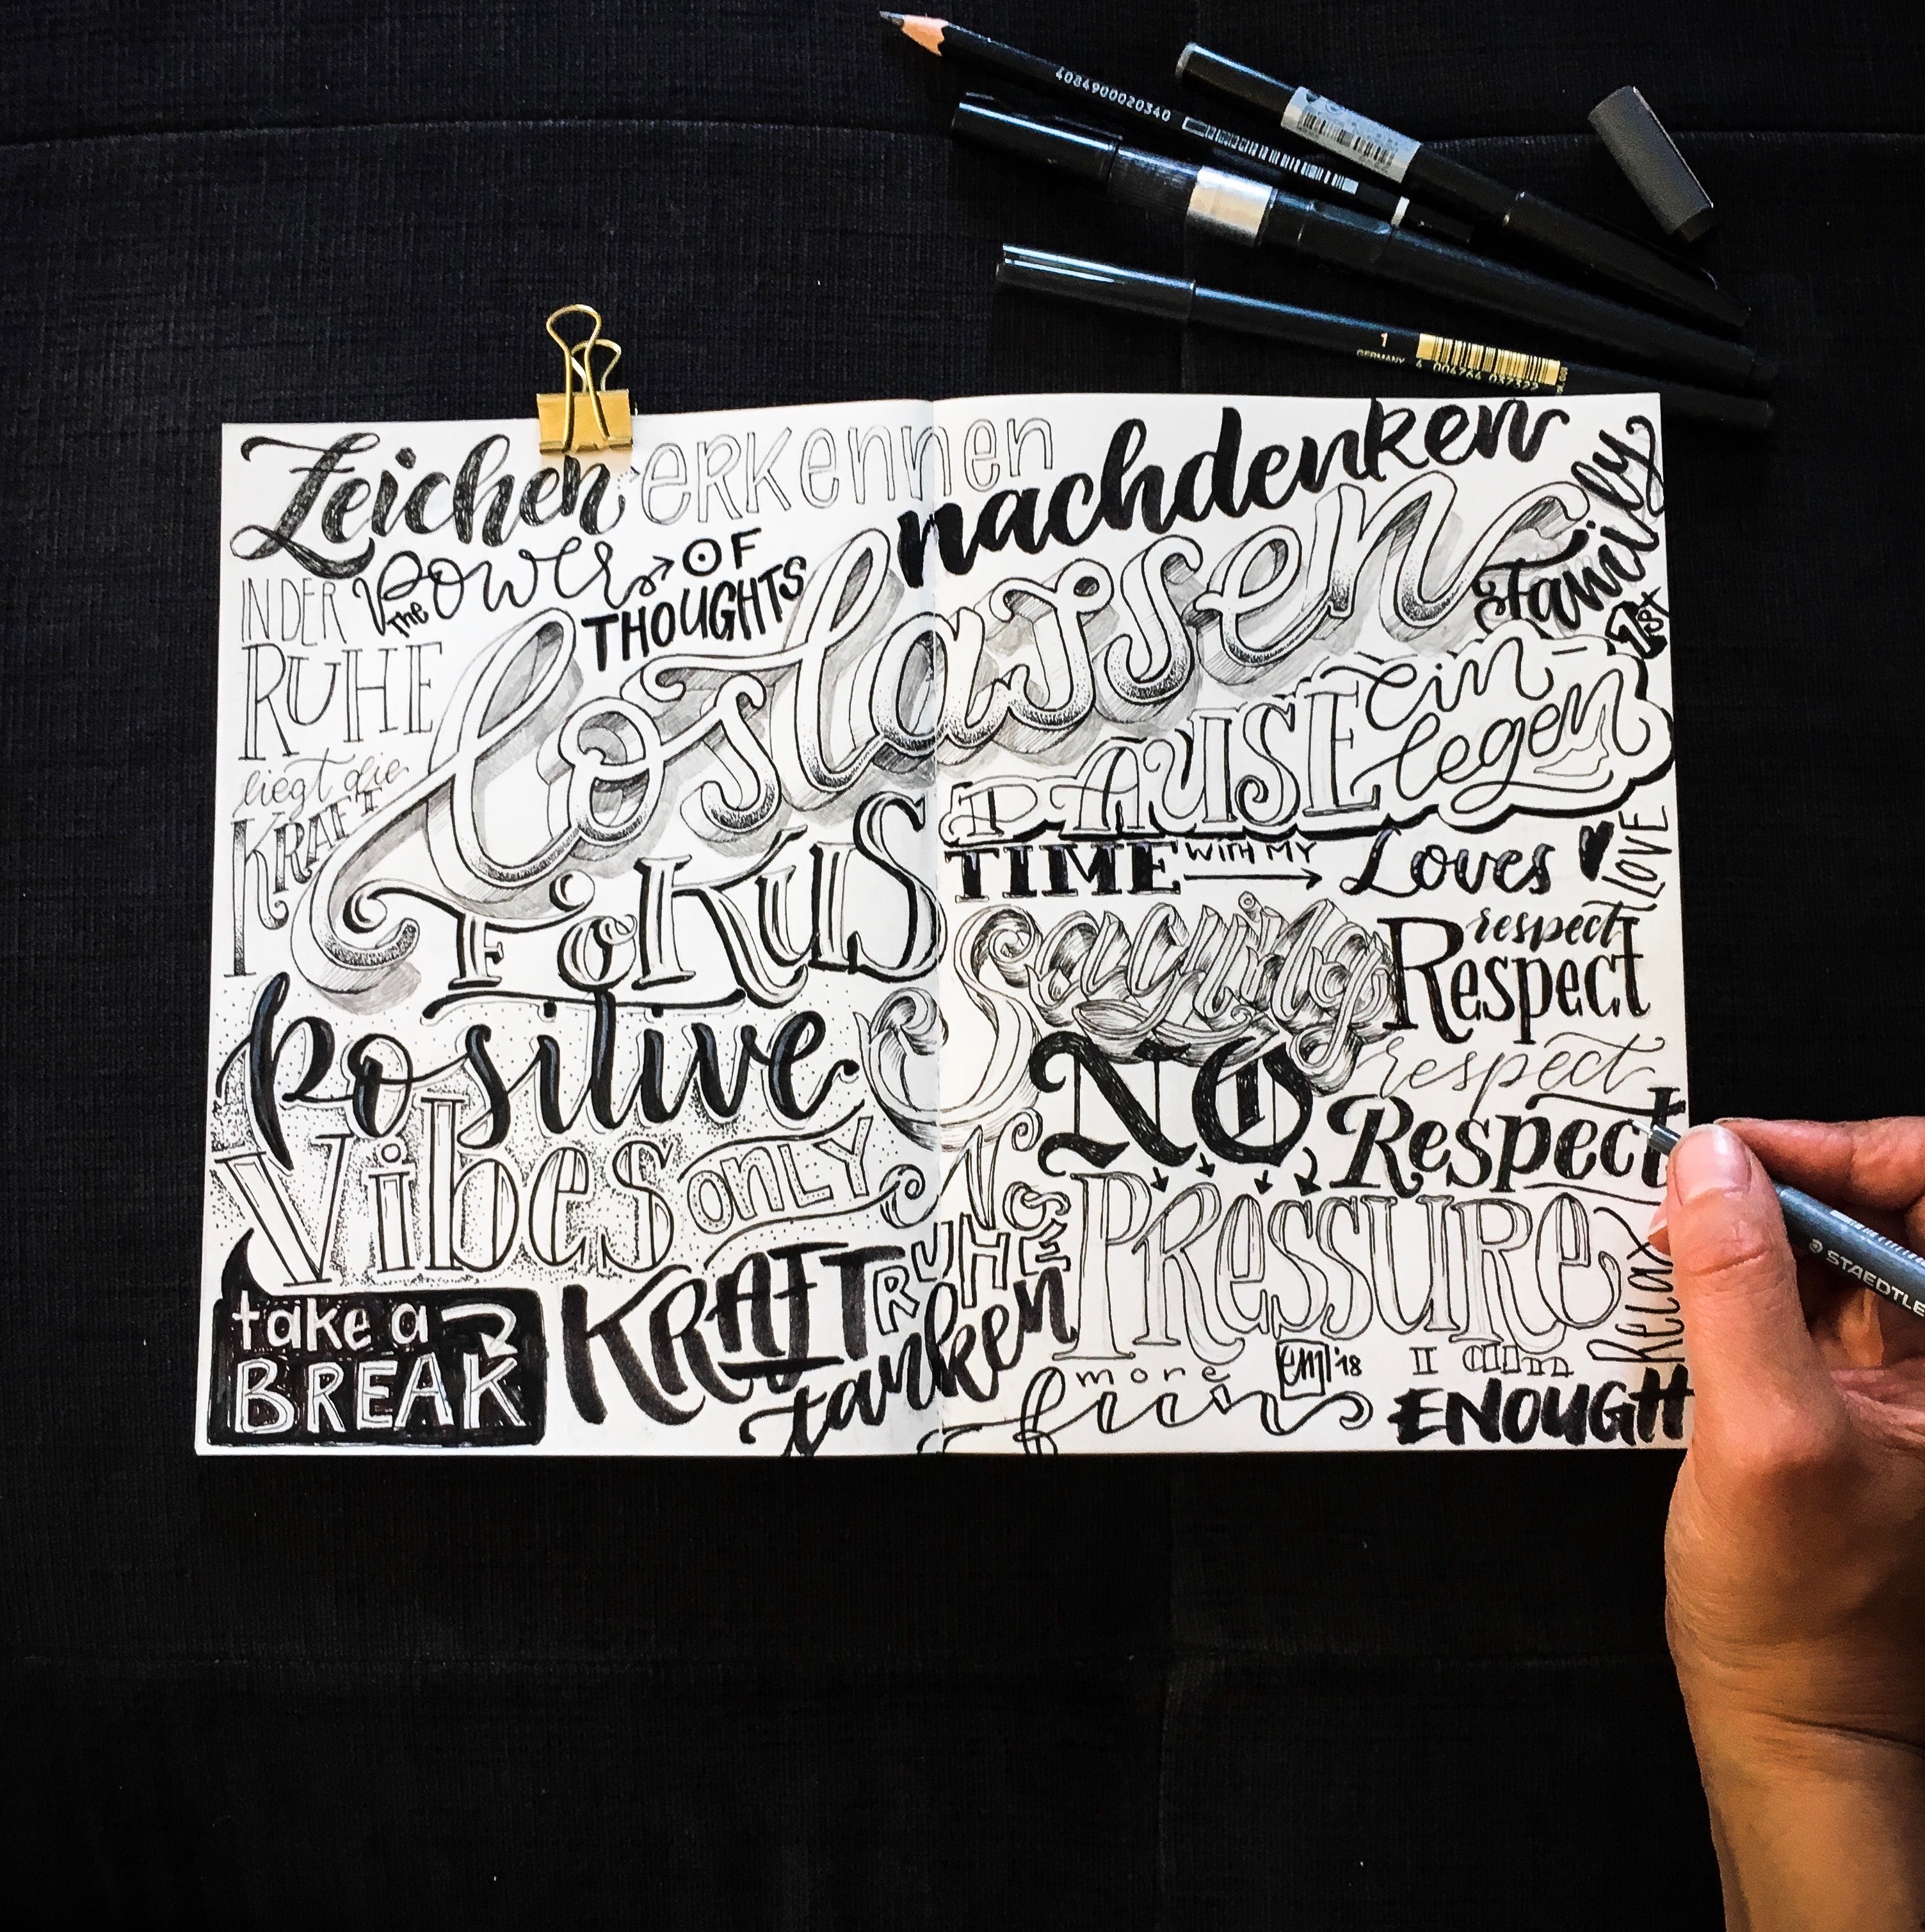 4084900020340
1
GERMANY
4 004764 037322
Zeichen erkennen
nachdenken
Family
1st
The Power OF
THOUGHTS
IN DER
RUHE
liegt die
KRAFT
loslassen
PAUSE ein-
legen
FOKUS
TIME WITH MY Loves
LOVE
Saying
NO
respect
Respect
respect
Respect
positive
Vibes ONLY
NO
PRESSURE
Relax
take a
BREAK
KRAFT
tanken
RUHE
more
fun
em '18
I am
ENOUGH
STAEDTLE